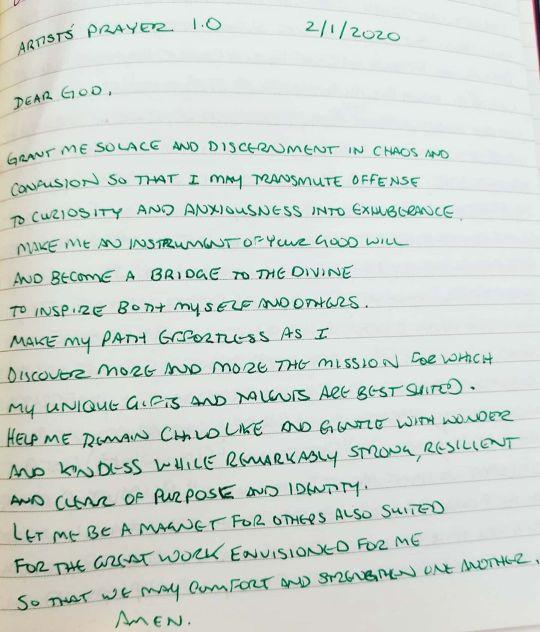 ARTISTS' PRAYER 1.0 2/1/2020
DEAR GOD,
GRANT ME SOLACE AND DISCERNMENT IN CHAOS AND
CONFUSION SO THAT I MAY TRANSMUTE OFFENSE
TO CURIOSITY AND ANXIOUSNESS INTO EXHUBERANCE.
MAKE ME AN INSTRUMENT OF YOUR GOOD WILL
AND BECOME A BRIDGE TO THE DIVINE
TO INSPIRE BOTH MYSELF AND OTHERS.
MAKE MY PATH EFFORTLESS AS I
DISCOVER MORE AND MORE THE MISSION FOR WHICH
MY UNIQUE GIFTS AND TALENTS ARE BEST SUITED.
HELP ME REMAIN CHILD LIKE AND GENTLE WITH WONDER
AND KINDLESS WHILE REMARKABLY STRONG, RESILIENT
AND CLEAR OF PURPOSE AND IDENTITY.
LET ME BE A MAGNET FOR OTHERS ALSO SUITED
FOR THE GREAT WORK ENVISIONED FOR ME
SO THAT WE MAY COMFORT AND STRENGTHEN ONE ANOTHER.
AMEN.